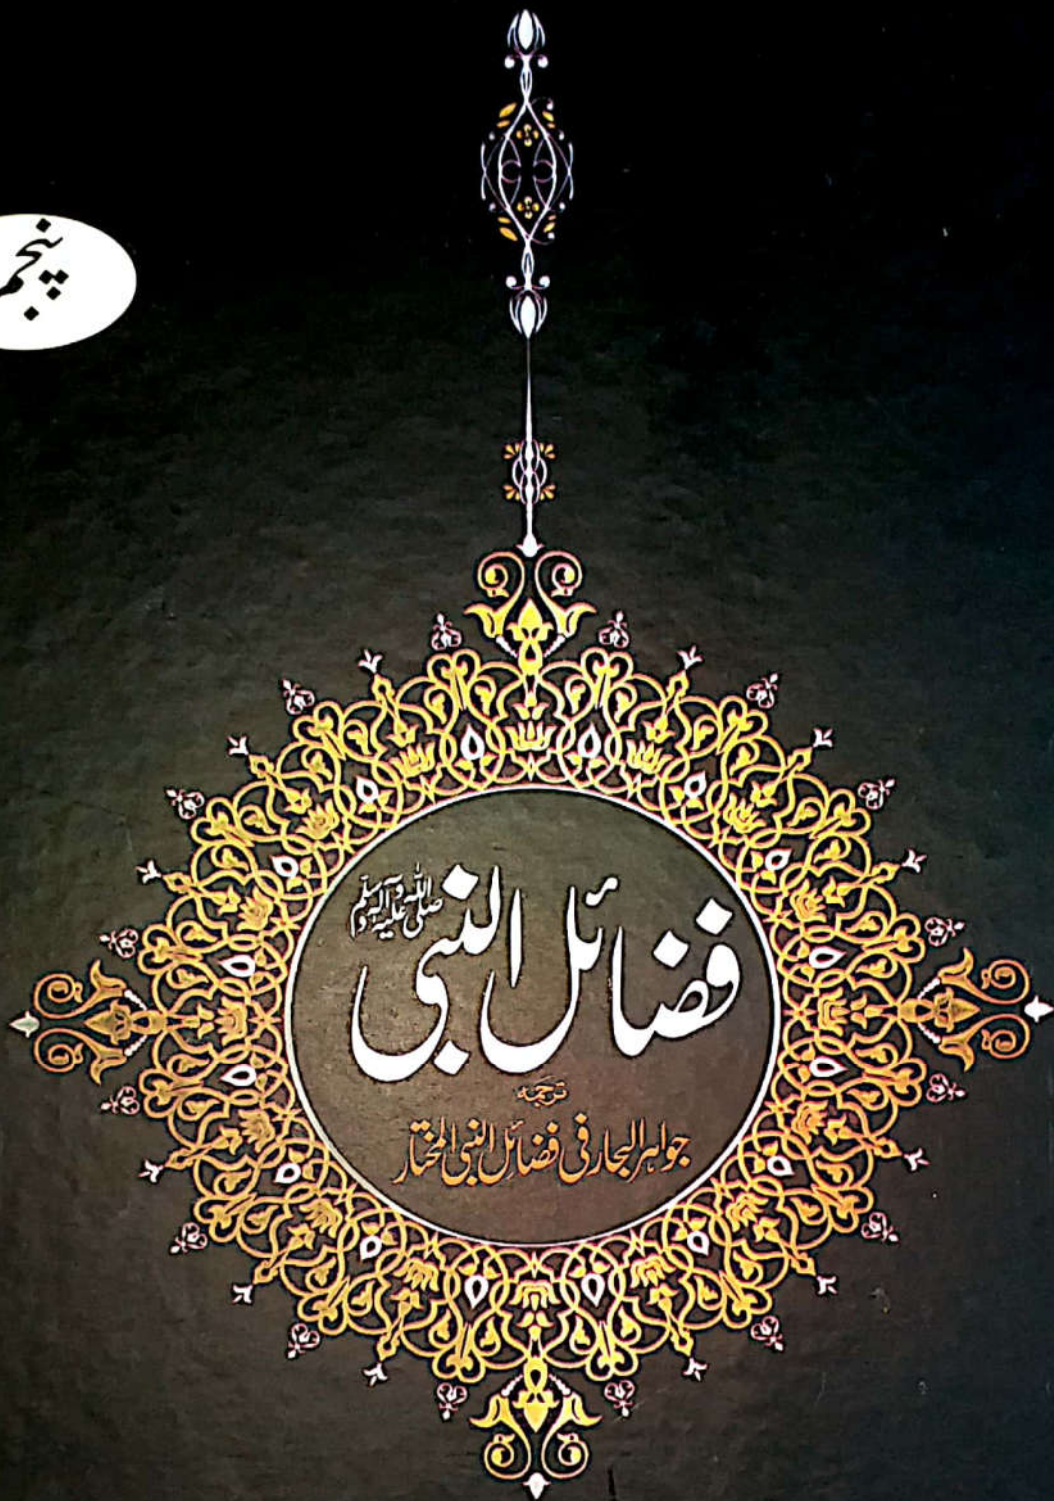 پنجم
فضائل النبی صلی اللہ علیہ وآلہ وسلم
ترجمہ
جواہر البحار فی فضائل النبی المختار